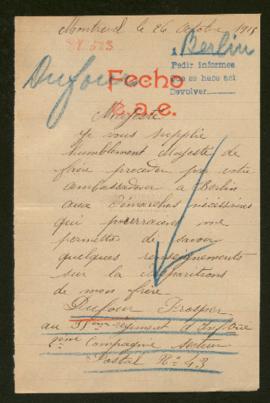 Montreuil le 26 Octobre 1915
A Berlin
Pedir informes
que se hace así
Devolver
Dufour
Fecho
Majesté
Je vous supplie
humblement Majesté de
faire procéder par votre
ambassadeur à Berlin
aux démarches nécessaires
qui pourraient me
permettre de savoir
quelques renseignements
sur la disparitions
de mon frère
Dufour Prosper
au régiment d'Infrie
Compagnie secteur
Postal No 43